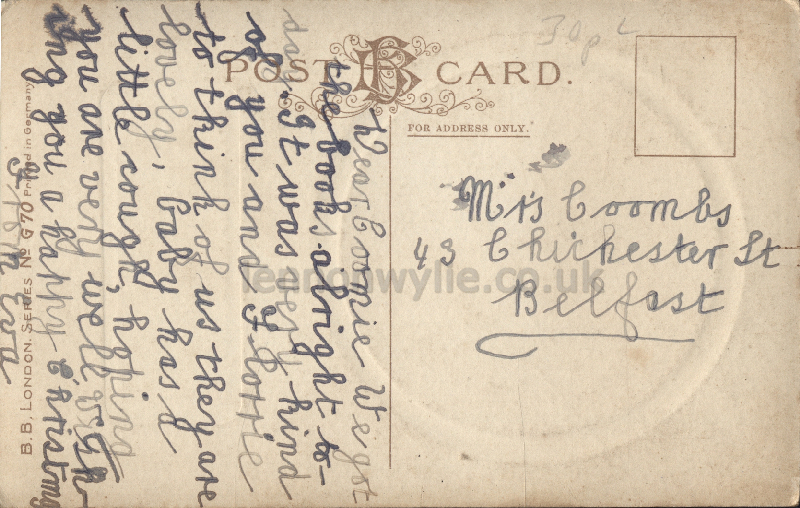 30p
POST CARD.
FOR ADDRESS ONLY.
Mrs Coombs
43 Chichester St
Belfast
Dear Coonie We got
the books alright to-
day. It was very kind
of you and Florrie
to think of us they are
lovely, baby has a
little cough, hoping
you are very well wish-
ing you a happy Christmas
from Eva
B.B, LONDON. SERIES No G70 Printed in Germany
leanonwyllie.co.uk